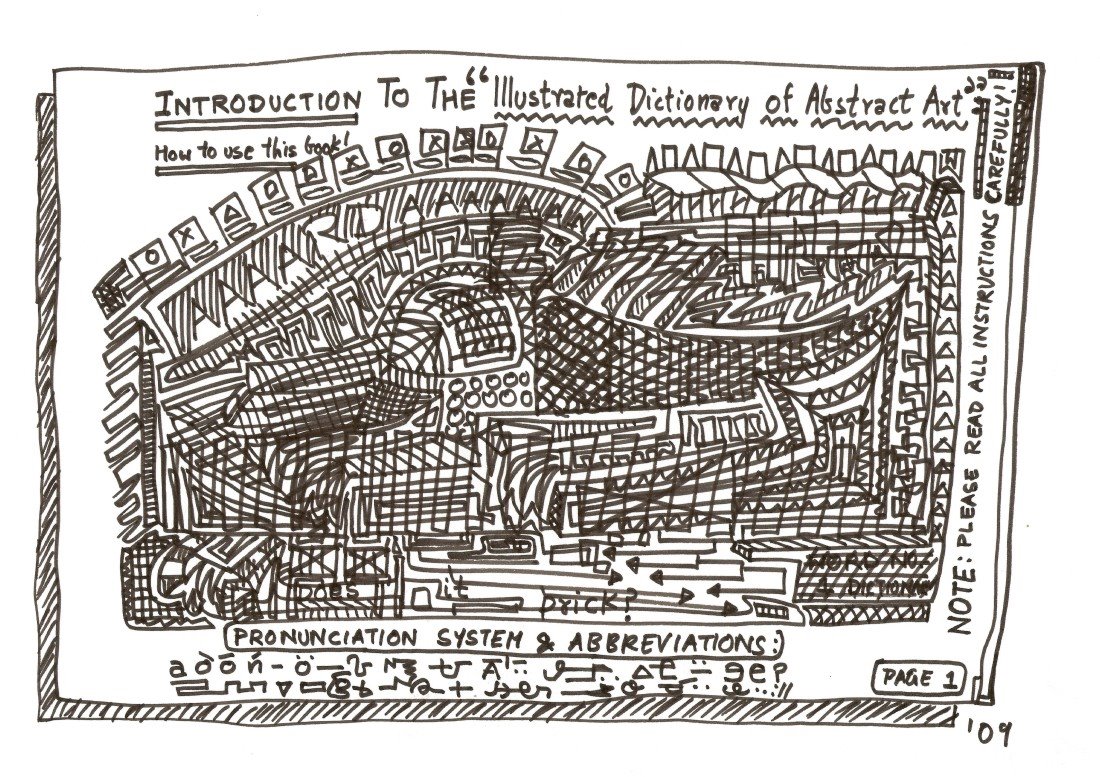 INTRODUCTION TO THE “Illustrated Dictionary of Abstract Art”
How to use this book!
NOTE: PLEASE READ ALL INSTRUCTIONS CAREFULLY!
DOES it prick?
PRONUNCIATION SYSTEM & ABBREVIATIONS:)
PAGE 1
'09